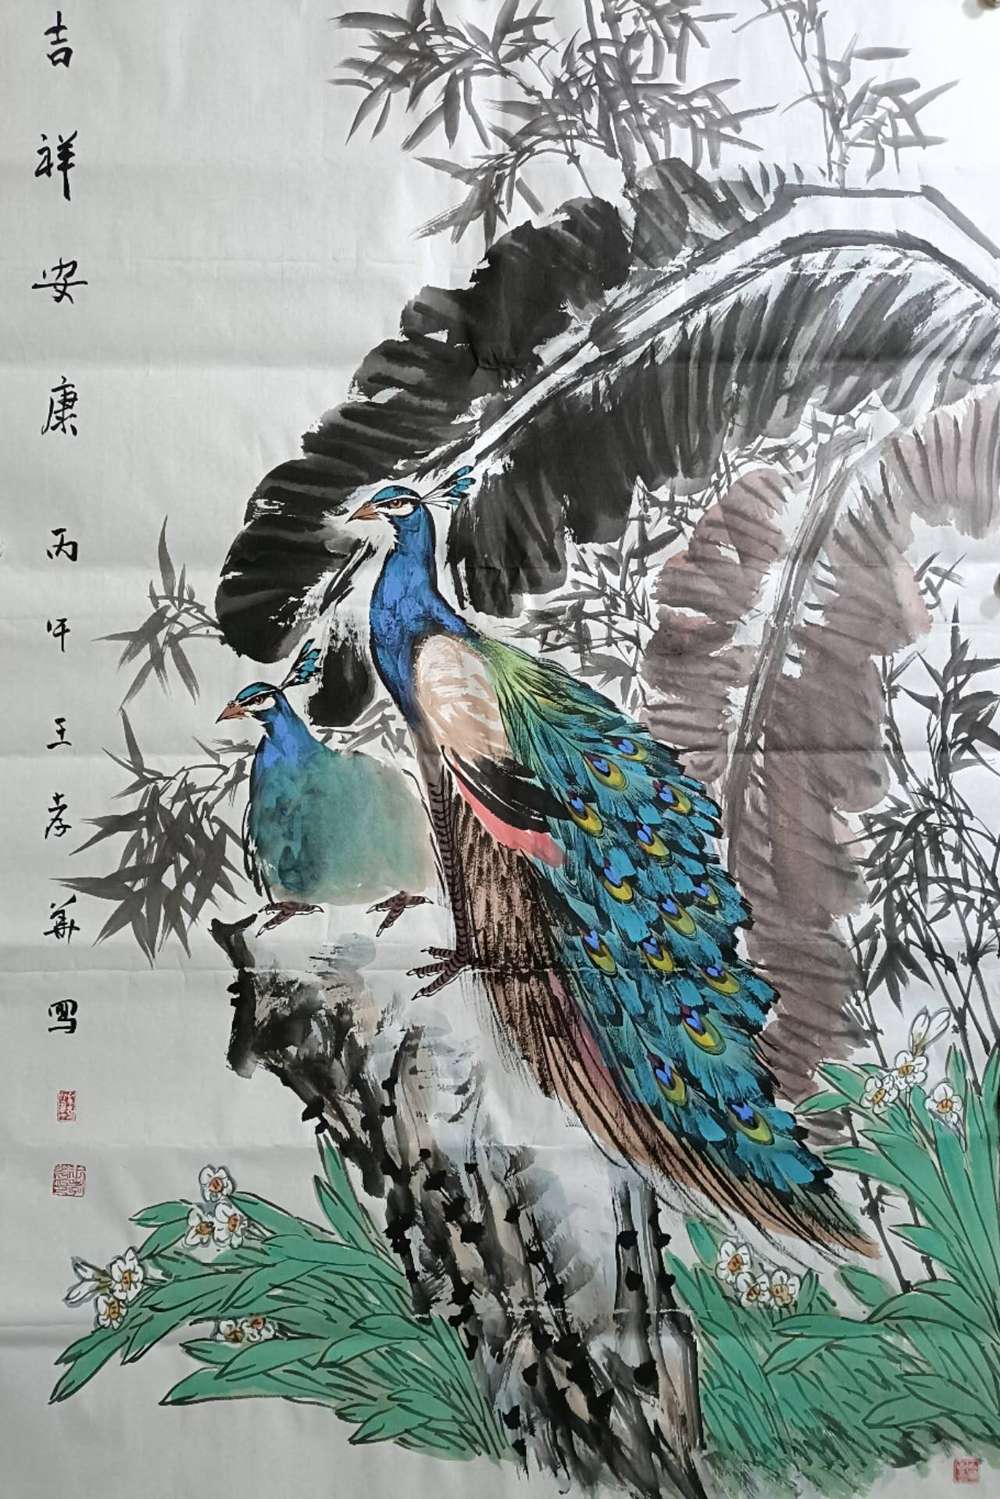 吉祥安康 丙午 王孝華畫